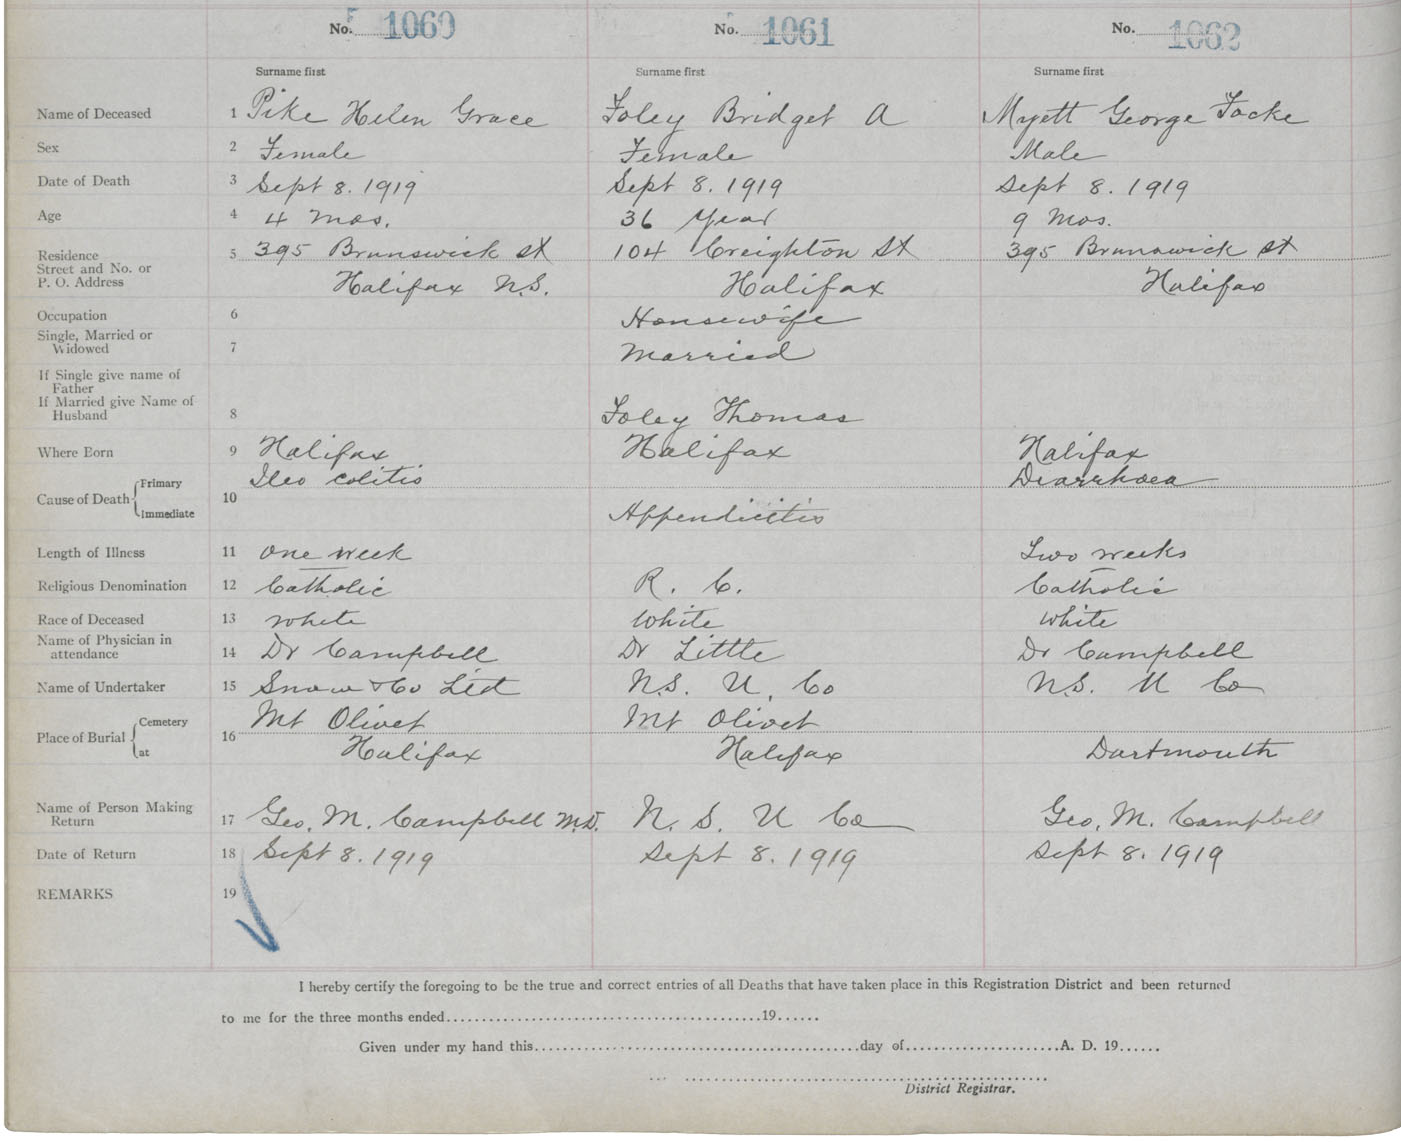 No. 1060 No. 1061 No. 1062
Surname first Surname first Surname first
Name of Deceased 1 Pike Helen Grace Foley Bridget A Myett George Focke
Sex 2 Female Female Male
Date of Death 3 Sept 8. 1919 Sept 8. 1919 Sept 8. 1919
Age 4 4 Mos. 36 Year 9 Mos.
Residence 5 395 Brunswick St 104 Creighton St 395 Brunswick St
Street and No. or
P. O. Address Halifax N.S. Halifax Halifax
Occupation 6 Housewife
Single, Married or
Widowed 7 Married
If Single give name of
Father
If Married give Name of
Husband 8 Foley Thomas
Where Born 9 Halifax Halifax Halifax
Primary Ileo colitis Diarrhoea
Cause of Death 10
Immediate Appendicitis
Length of Illness 11 One week Two weeks
Religious Denomination 12 Catholic R. C. Catholic
Race of Deceased 13 White White White
Name of Physician in
attendance 14 Dr Campbell Dr Little Dr Campbell
Name of Undertaker 15 Snow & Co Ltd N.S. U. Co N.S. U Co
Cemetery Mt Olivet Mt Olivet
Place of Burial 16
at Halifax Halifax Dartmouth
Name of Person Making
Return 17 Geo. M. Campbell M.D. N. S. U Co Geo. M. Campbell
Date of Return 18 Sept 8. 1919 Sept 8. 1919 Sept 8. 1919
REMARKS 19
I hereby certify the foregoing to be the true and correct entries of all Deaths that have taken place in this Registration District and been returned
to me for the three months ended..........19......
Given under my hand this..........day of..........A. D. 19......
District Registrar.